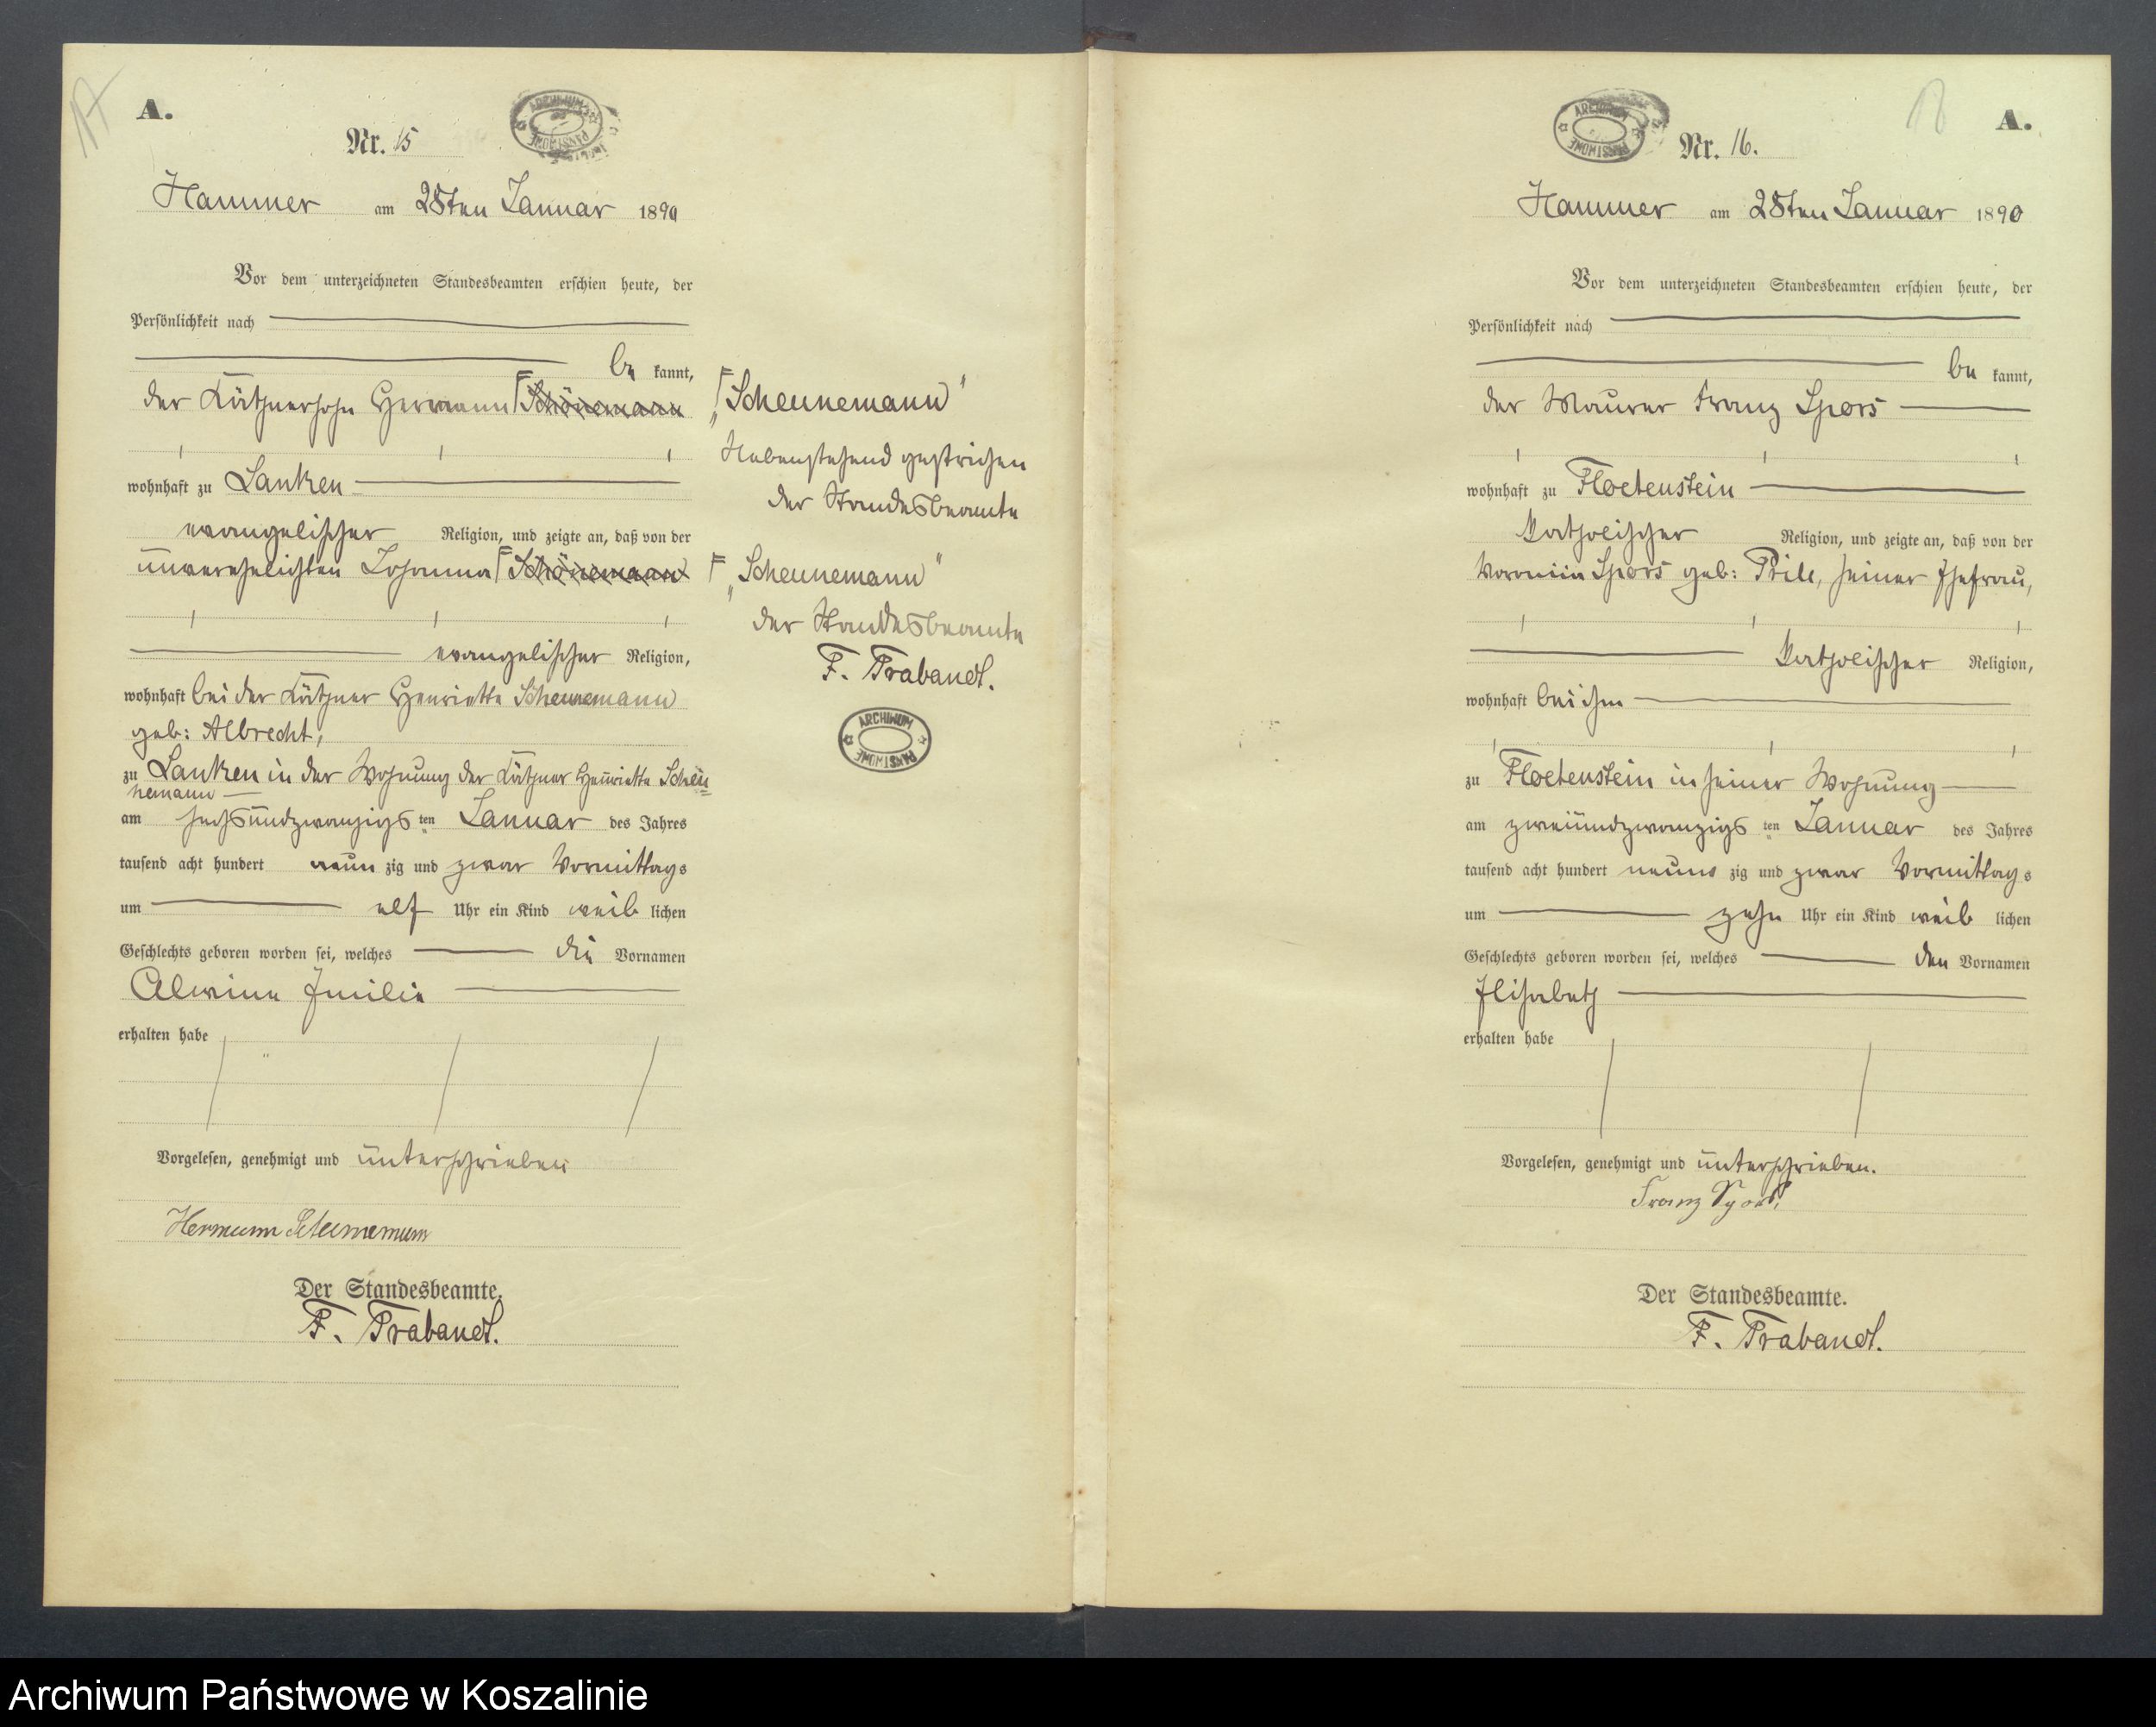 17
A.
Nr. 15
ARCHIWUM PAŃSTWOWE
Hammer am 28ten Januar 1890
Vor dem unterzeichneten Standesbeamten erschien heute, der
Persönlichkeit nach
be kannt,
der Käthnersohn Hermann Ƒ Schönemann
wohnhaft zu Lanken
evangelischer Religion, und zeigte an, daß von der
unverehelichten Johanna Ƒ Schönemann
evangelischer Religion,
wohnhaft bei der Käthner Henriette Scheunemann
geb: Albrecht,
zu Lanken in der Wohnung der Käthner Henriette Scheu=
nemann
am sechsundzwanzigs ten Januar des Jahres
tausend acht hundert neun zig und zwar Vormittags
um elf Uhr ein Kind weib lichen
Geschlechts geboren worden sei, welches die Vornamen
Alwine Emilie
erhalten habe
Vorgelesen, genehmigt und unterschrieben
Hermann Scheunemann
Der Standesbeamte.
F. Trabandt.
Ƒ „Scheunemann"
Nebenstehend gestrichen
der Standesbeamte
Ƒ „Scheunemann"
der Standesbeamte
F. Trabandt.
ARCHIWUM PAŃSTWOWE
ARCHIWUM PAŃSTWOWE
Nr. 16.
18
A.
Hammer am 28ten Januar 1890
Vor dem unterzeichneten Standesbeamten erschien heute, der
Persönlichkeit nach
be kannt,
der Maurer Franz Spors
wohnhaft zu Floetenstein
katholischer Religion, und zeigte an, daß von der
Spors geb: Prill, seiner Ehefrau,
katholischer Religion,
wohnhaft bei ihm
zu Floetenstein in seiner Wohnung
am zweiundzwanzigs ten Januar des Jahres
tausend acht hundert neun zig und zwar Vormittags
um zehn Uhr ein Kind weib lichen
Geschlechts geboren worden sei, welches den Vornamen
Elisabeth
erhalten habe
Vorgelesen, genehmigt und unterschrieben.
Franz Spors
Der Standesbeamte.
F. Trabandt.
Archiwum Państwowe w Koszalinie